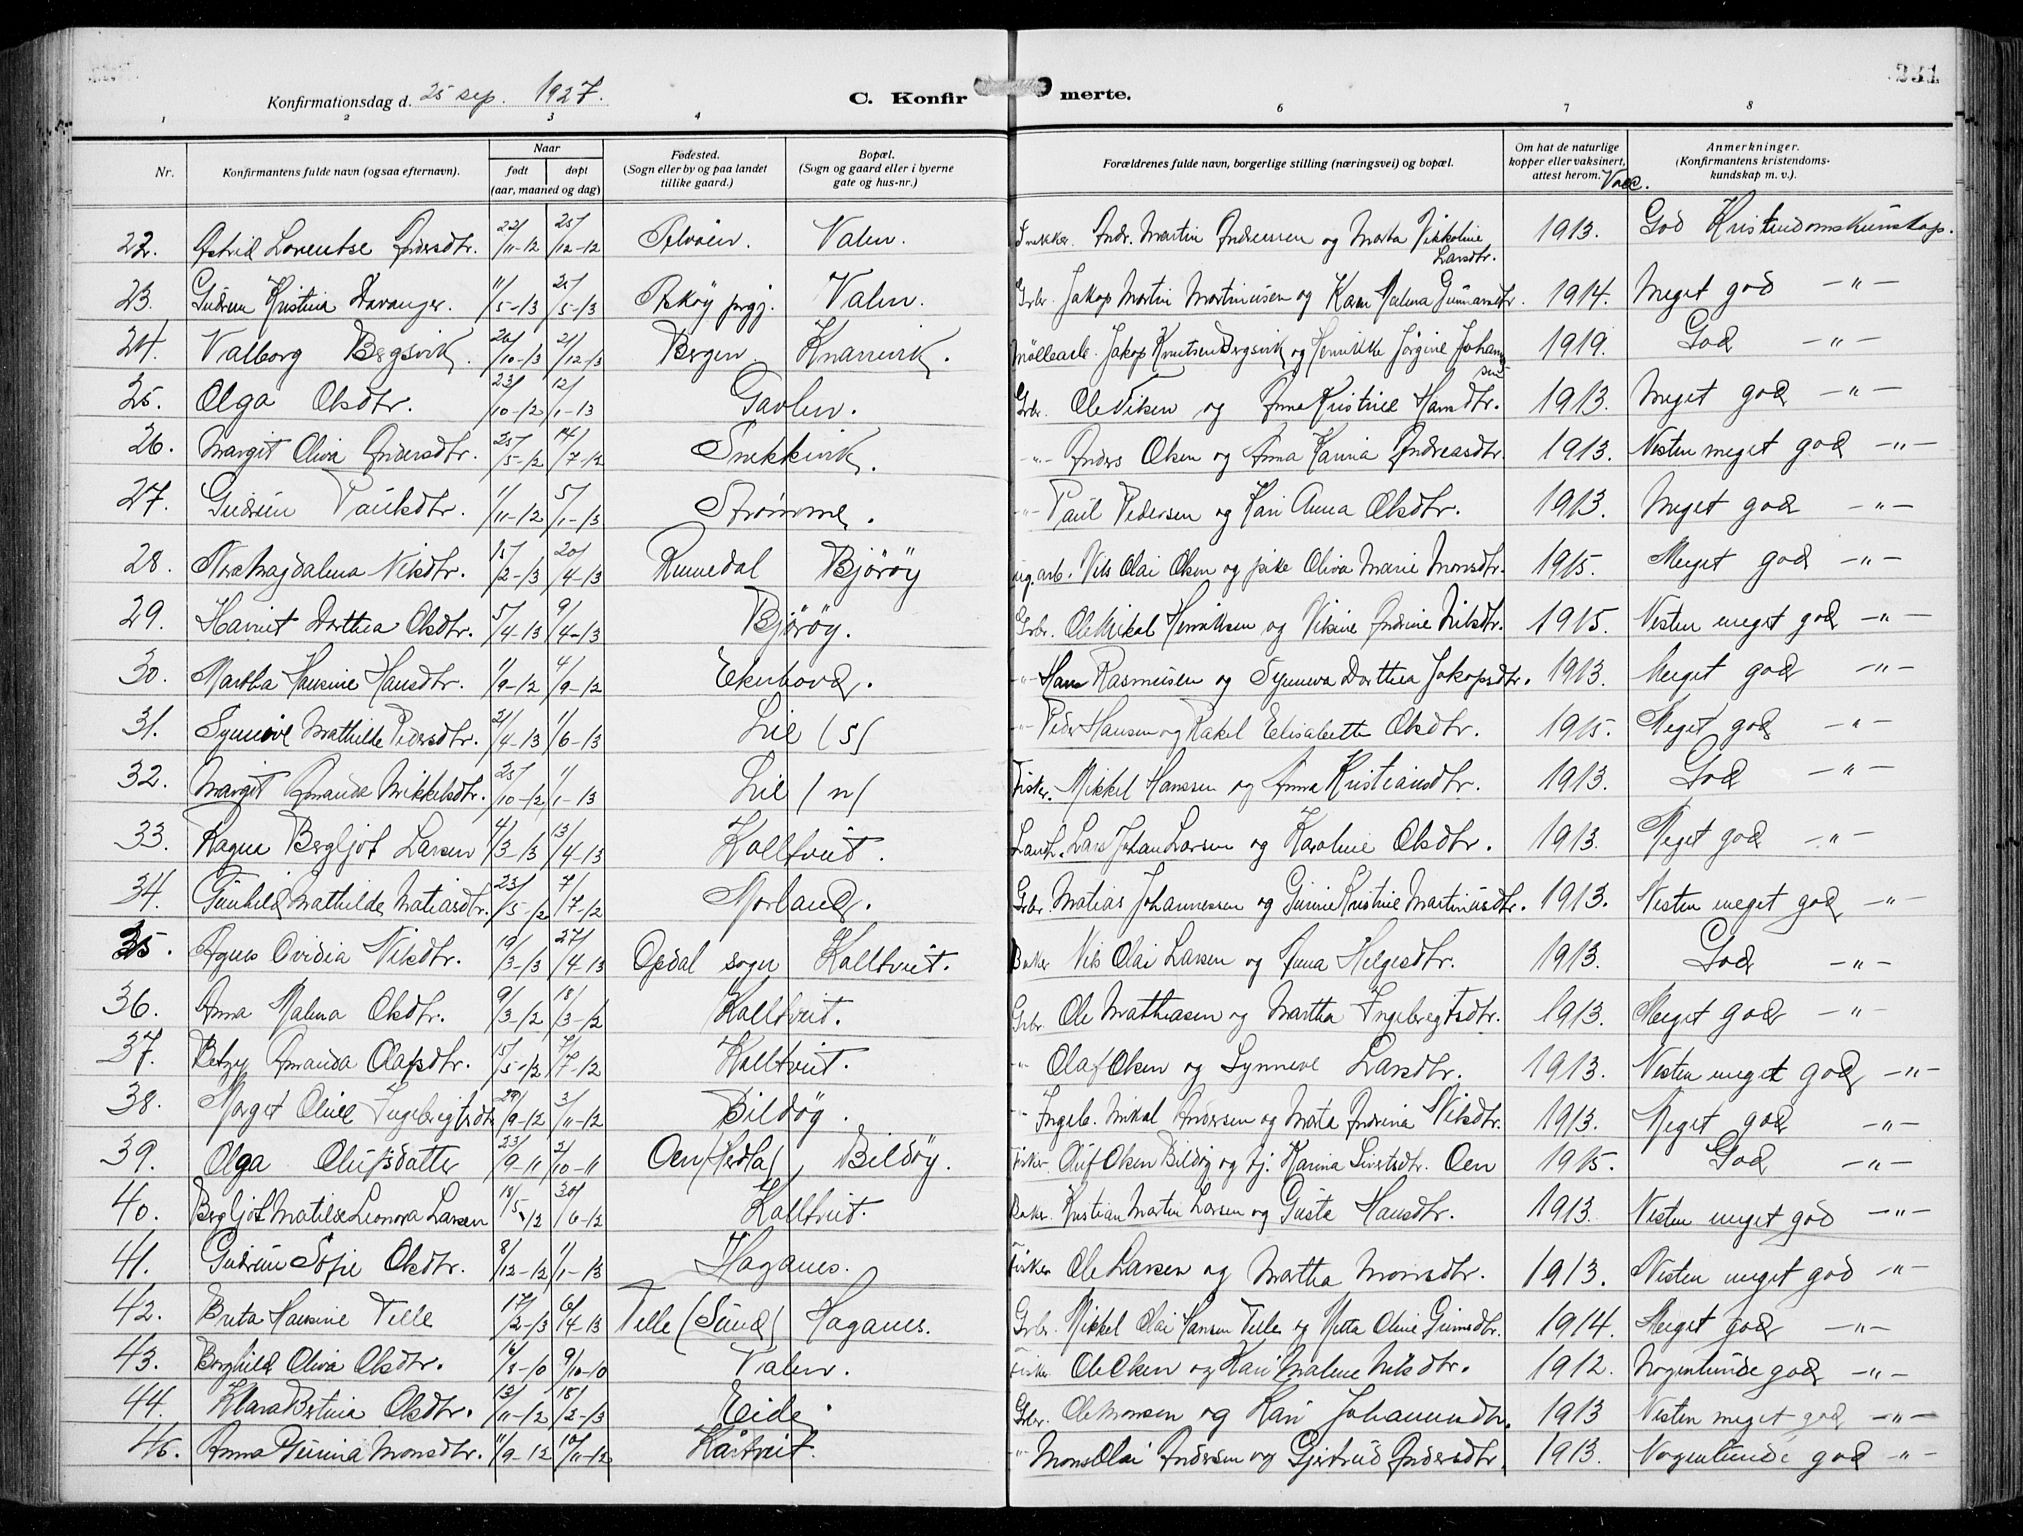 331
Konfirmationsdag d. 25 sep. 1927.
C. Konfirmerte.
1 2 3 4 6 7 8
Nr. Konfirmantens fulde navn (ogsaa efternavn). Naar født døpt (aar, maaned og dag) Fødested. (Sogn eller by og paa landet tillike gaard.) Bopæl. (Sogn og gaard eller i byerne gate og hus-nr.) Forældrenes fulde navn, borgerlige stilling (næringsvei) og bopæl. Om hat de naturlige kopper eller vaksinert, attest herom. Vacc. Anmerkninger. (Konfirmantens kristendomskundskap m. v.).
22. Astrid Lorentse Andersdtr. 22/11-12 25/12-12 Valen. Snekker. Andr. Martin Andreassen og Marta Larsdtr. 1913. God Kristendomskunskap.
23. Gudrun Kristina Davanger. 11/5-13 25/5-13 Askøy prgj. Valen. Grbr. Jakop Martin Martinusen og Malena Gunnarsdtr. 1914. Meget god -"-
24. Valborg Bergsvik. 20/10-13 21/12-13 Bergen. Knarrevik. Møllearb. Jakop Knutsen Bergsvik og Henrikke Jørgine Johannessen 1919. God -"-
25. Olga Olsdtr. 23/10-12 12/1-13 Gavlen. Grbr. Ole Nilsen og Anna Kristine Hansdtr. 1913. Meget god -"-
26. Margit Oliva Andersdtr. 25/5-12 14/7-12 Snekkevik. -"- Anders Olsen og Anna Karina Andreasdtr. 1913. Nesten meget god -"-
27. Gudrun Paulsdtr. 1/11-12 5/1-13 Strømme. -"- Paul Pedersen og Kari Anna Olsdtr. 1913. Meget god -"-
28. Nora Magdalena Nilsdtr. 15/2-13 20/4-13 Bjørøy ug. arb. Nils Olai Olsen og pike Oliva Marie Monsdtr. 1915. Meget god -"-
29. Harriet Dorthea Olsdtr. 5/4-13 9/4-13 Bjørøy. Grbr. Ole Mikal Henriksen og Andrine Nilsdtr. 1915. Nesten meget god -"-
30. Martha Hansine Hansdtr. 1/9-12 4/9-12 Ekerhovd. -"- Hans Rasmusen og Synneva Dorthea Jakopsdtr. 1913. Meget god -"-
31. Synneve Mathilde Pedersdtr. 21/4-13 1/6-13 Lie (s) -"- Peder Hansen og Rakel Elisabetta Olsdtr. 1915. Meget god -"-
32. Margit Amanda Mikkelsdtr. 25/10-12 1/1-13 Lie (n) Fisker. Mikkel Hanssen og Anna Kristiansdtr. 1913. God -"-
33. Ragna Bergljot Larsen 4/3-13 13/4-13 Kolltveit. Landh. Lars Johan Larsen og Karoline Olsdtr. 1913. Meget god -"-
34. Gunhild Mathilde Matiasdtr. 23/5-12 7/7-12 Morland. Grbr. Matias Johannessen og Gurine Kristine Martinusdtr. 1913. Nesten meget god -"-
35. Agnes Ovidia Nilsdtr. 19/3-13 27/4-13 Opdal sogn Kolltveit. Baker Nils Olai Larsen og Anna Helgesdtr. 1913. God -"-
36. Anna Malena Olsdtr. 9/3-12 18/3-12 Kolltveit. Grbr. Ole Mathiasen og Martha Ingebregtsdtr. 1913. Meget god -"-
37. Betzy Amanda Olafsdtr. 15/5-12 7/7-12 Kolltveit. -"- Olaf Olsen og Synneve Larsdtr. 1913. Nesten meget god -"-
38. Marget Oline Ingebrigtsdtr 29/9-12 3/11-12 Bildøy. -"- Ingeb. Mikal Andersen og Marta Andrina Nilsdtr. 1913. Meget god -"-
39. Olga Olufsdatter 23/9-11 2/10-11 Oen (Herdla), Bildøy. Fisker. Oluf Olsen Bildøy og pj. Karina Sivertsdtr. Oen 1915. God -"-
40. Bergljot Matilde Leonora Larsen 18/5-12 30/6-12 Kolltveit. Baker. Kristian Martin Larsen og Gusta Hansdtr. 1913. Nesten meget god -"-
41. Gudrun Sofie Olsdtr. 8/12-12 1/1-13 Haganes. Fisker Ole Larsen og Martha Monsdtr. 1913. Nesten meget god -"-
42. Brita Hansine Telle 17/2-13 6/4-13 Telle (Sund) Haganes. Grbr. Mikkel Olai Hansen Telle og Oline 1914. Meget god -"-
43. Borghild Oliva Olsdtr. 16/8-10 9/10-10 Valen. Fisker. Ole Olsen og Kari Malene Nilsdtr. 1912. Nogenlunde god -"-
44. Klara Bertina Olsdtr. 13/11-12 18/2-13 Eide. Grbr. Ole Monsen og Kari Johannesdtr. 1913 Nesten meget god -"-
45. Anna Gurina Monsdtr. 11/9-12 10/11-12 Kårtveit. -"- Mons Olai Andersen og Gjertrud Andersdtr. 1913. Nogenlunde god -"-